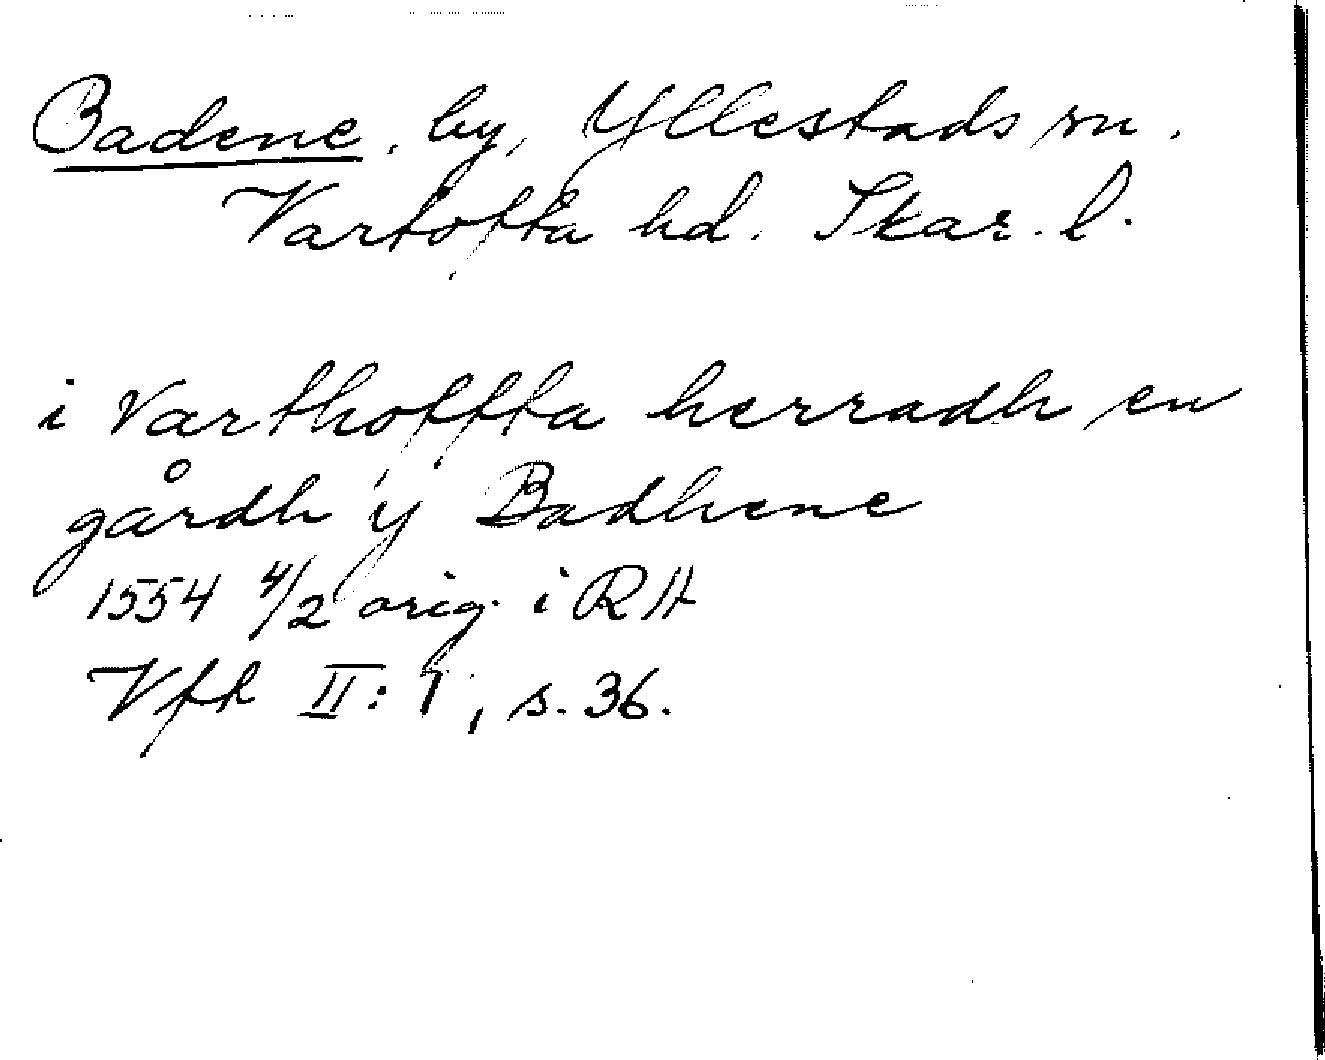 Badene, by, Yllestads sn.
Vartofta hd. Skar. l.
i Varthoffta herradh en
gårdh y Badhene
1554 4/2 orig. i RA
Vfr II: 1, s. 36.